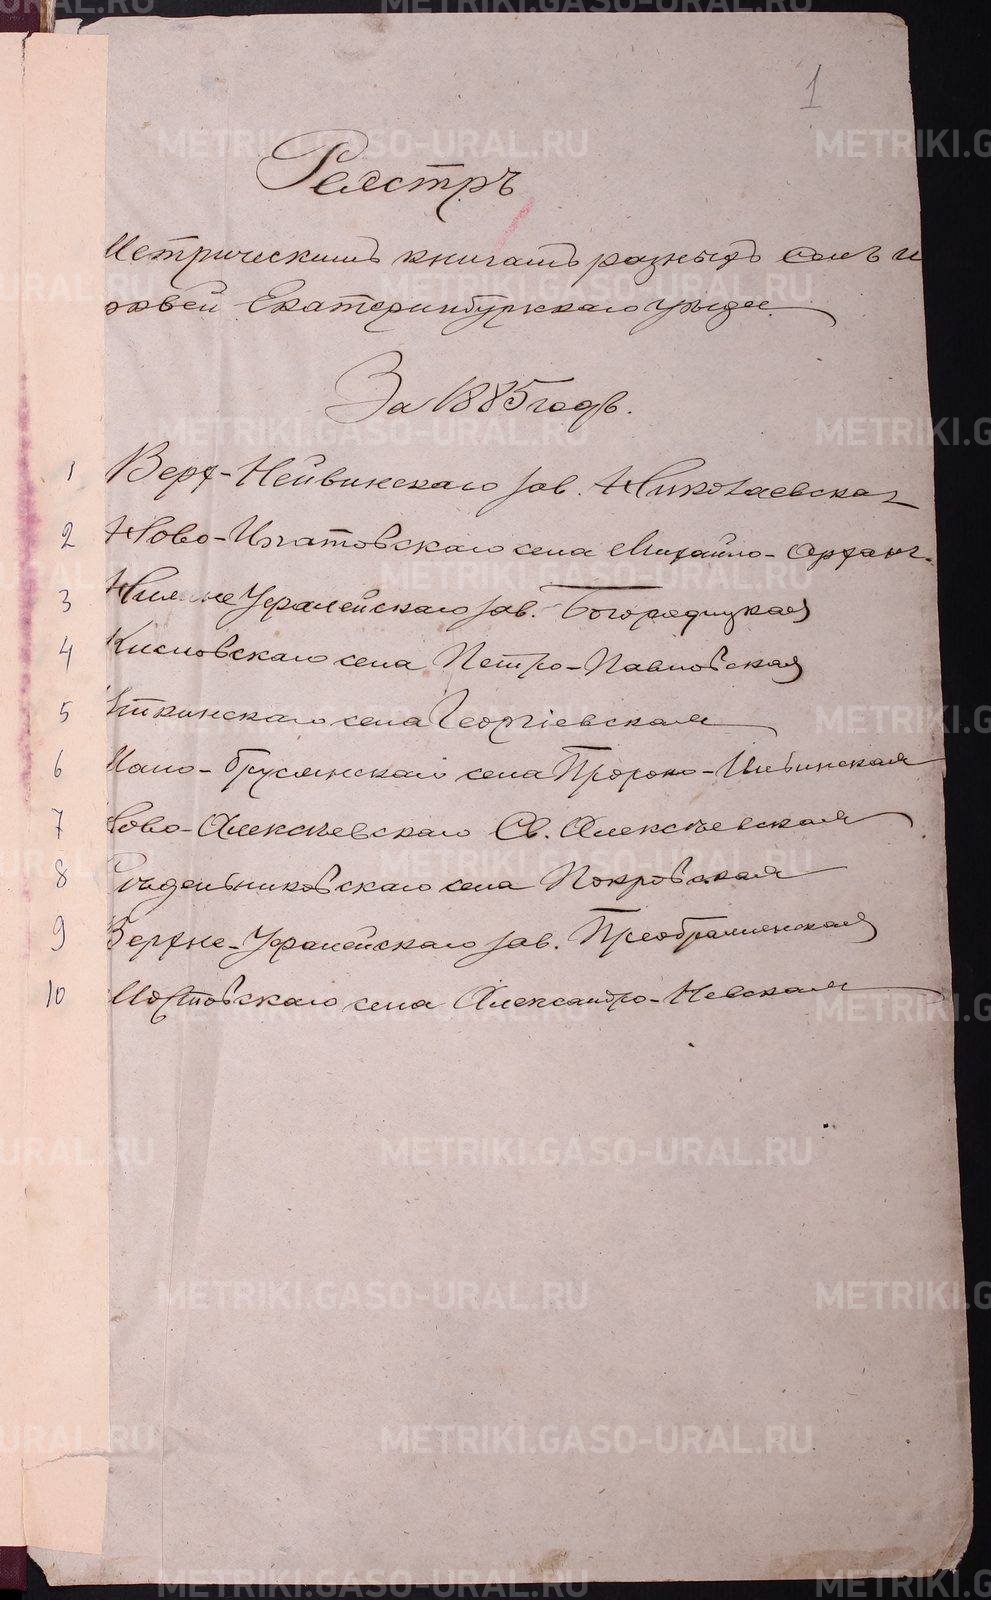 1
Реестръ
Метрическимъ книгамъ разныхъ селъ и
рквей Екатеринбургскаго уѣзда
За 1885 годъ.
1 Верх-Нейвинскаго зав. Николаевская
2 Ново-Ипатовскаго села Михайло-Арханг.
3 Нижне Уфалейскаго зав. Богородицкая
4 Кисловскаго села Петро-Павловская
5 Уткинскаго села Георгіевская
6 Мало-Брусянскаго села Пророко-Ильинская
7 Ново-Алексѣевскаго Св. Алексѣевская
8 Сыдельниковскаго села Покровская
9 Верхне-Уфалейскаго зав. Преображенская
10 Мостовскаго села Александро-Невская
METRIKI.GASO-URAL.RU